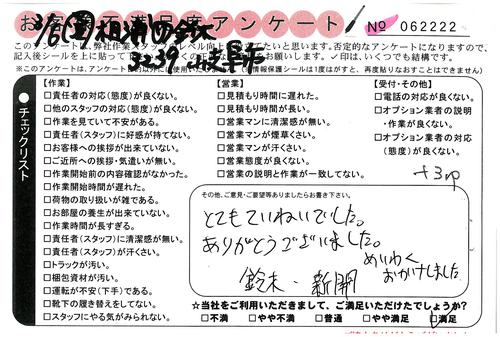 お客様満足度アンケート
No 062222
このアンケートは、弊社作業スタッフのレベル向上
たいと思います。否定的なアンケートになりますので、
記入後シールを上に貼って
お願いします。✓印は、いくつでも結構です。
情報保護シールは1度はがすと、再度貼りなおすことはできません)
チェックリスト
【作業】
□責任者の対応(態度)が良くない。
□他のスタッフの対応(態度)が良くない。
□作業を見ていて不安がある。
□責任者(スタッフ)に好感が持てない。
□お客様への挨拶が出来ていない。
□ご近所への挨拶・気遣いが無い。
□作業開始前の内容確認がなかった。
□作業開始時間が遅れた。
□荷物の取り扱いが雑である。
□お部屋の養生が出来ていない。
□作業時間が長すぎる。
□責任者(スタッフ)に清潔感が無い。
□責任者(スタッフ)が汗くさい。
□トラックが汚い。
□梱包資材が汚い。
□運転が不安(下手)である。
□靴下の履き替えをしてない。
□スタッフにやる気がみられない。
【営業】
□見積もり時間に遅れた。
□見積もり時間が長い。
□営業マンに清潔感が無い。
□営業マンが煙草くさい。
□営業マンが汗くさい。
□営業態度が良くない。
□営業の説明と作業が一致してない。
【受付・その他】
□電話の対応が良くない。
□オプション業者の説明
・作業が良くない。
□オプション業者の対応
(態度)が良くない。
その他、ご意見・ご要望等ありましたらお書き下さい。
とてもていねいでした。
ありがとうございました。
めいわく
おかけしました
鈴木・新開
☆当社をご利用いただきまして、ご満足いただけたでしょうか?
□不満 □やや不満 □普通 □やや満足 ☑満足